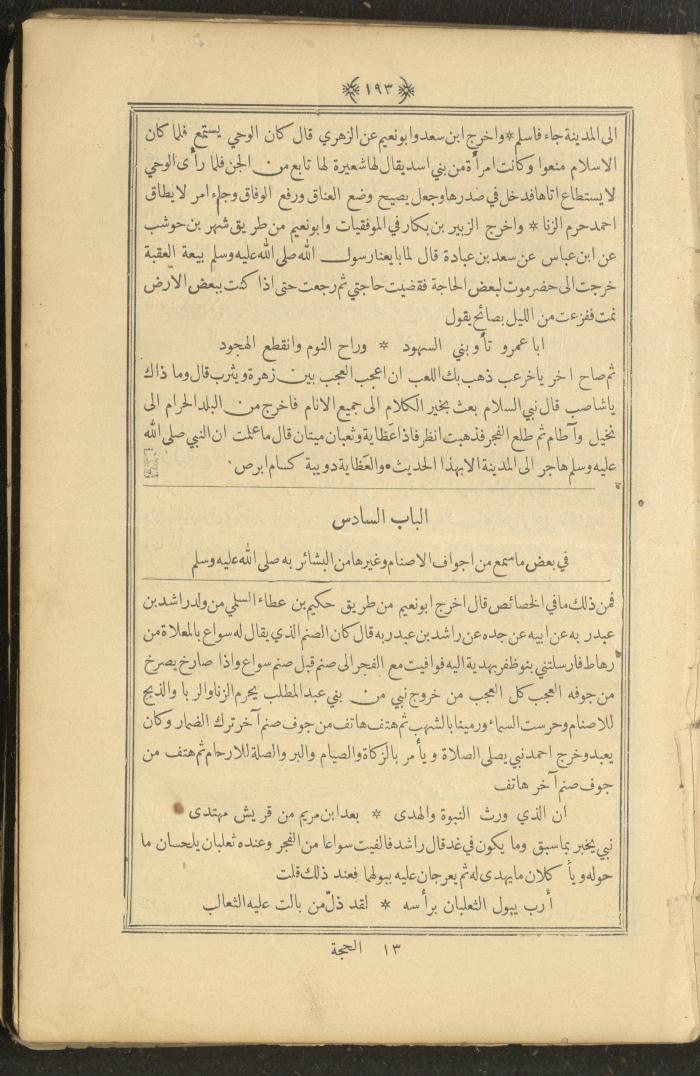 ١٩٣
الى المدينة جاء فاسلم * واخرج ابن سعد وابونعيم عن الزهري قال كان الوحي يستمع فلما كان
الاسلام منعوا وكانت امرأة من بني اسد يقال لها شعيرة لها تابع من الجن فلما رأى الوحي
لا يستطاع اتاها فدخل في صدرها وجعل يصيح وضع العناق ورفع الوفاق وجاء امر لا يطاق
احمد حرم الزنا * واخرج الزبير بن بكار في الموفقيات وابونعيم من طريق شهر بن حوشب
عن ابن عباس عن سعد بن عبادة قال لما بايعنا رسول الله صلى الله عليه وسلم بيعة العقبة
خرجت الى حضرموت لبعض الحاجة فقضيت حاجتي ثم رجعت حتى اذا كنت ببعض الارض
نمت ففزعت من الليل بصائح يقول
ابا عمرو تأوبني السهود * وراح النوم وانقطع الهجود
ثم صاح اخر ياخرعب ذهب بك اللعب ان اعجب العجب بين زهرة ويثرب قال وما ذاك
ياشاصب قال نبي السلام بعث بخير الكلام الى جميع الانام فاخرج من البلد الحرام الى
نخيل وآطام ثم طلع الفجر فذهبت انظر فاذا عظاية وثعبان ميتان قال ما علمت ان النبي صلى الله
عليه وسلم هاجر الى المدينة الا بهذا الحديث * والعظاية دويبة كسام ابرص
الباب السادس
في بعض ما سمع من اجواف الاصنام وغيرها من البشائر به صلى الله عليه وسلم
فمن ذلك ما في الخصائص قال اخرج ابونعيم من طريق حكيم بن عطاء السلمي من ولد راشد بن
عبدر به عن ابيه عن جده عن راشد بن عبدر به قال كان الصنم الذي يقال له سواع بالمعلاة من
رهاط فارسلتني بنو ظفر بهدية اليه فوافيت مع الفجر الى صنم قبل صنم سواع واذا صارخ يصرخ
من جوفه العجب كل العجب من خروج نبي من بني عبد المطلب يحرم الزنا والربا والذبح
للاصنام وحرست السماء ورمينا بالشهب ثم هتف هاتف من جوف صنم آخر ترك الضمار وكان
يعبد وخرج احمد نبي يصلى الصلاة ويأمر بالزكاة والصيام والبر والصلة للارحام ثم هتف من
جوف صنم آخر هاتف
ان الذي ورث النبوة والهدى * بعد ابن مريم من قريش مهتدى
نبي يخبر بما سبق وما يكون في غد قال راشد فالفيت سواعا من الفجر وعنده ثعلبان يلحسان ما
حوله ويأكلان ما يهدى له ثم يعرجان عليه ببولهما فعند ذلك قلت
أرب يبول الثعلبان برأسه * لقد ذل من بالت عليه الثعالب
١٣ الحجة